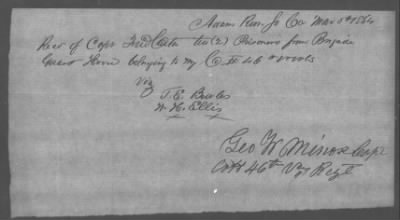 Adams Run So Ca Mar 5th 1864
Recd of Capt two (2) Prisoners from Brigade
Guard House belonging to my Co. H 46 Va vols
Viz
T. E. Bowles
W. H. Ellis
Geo W. Minor Capt
Co H 46th Va Regt